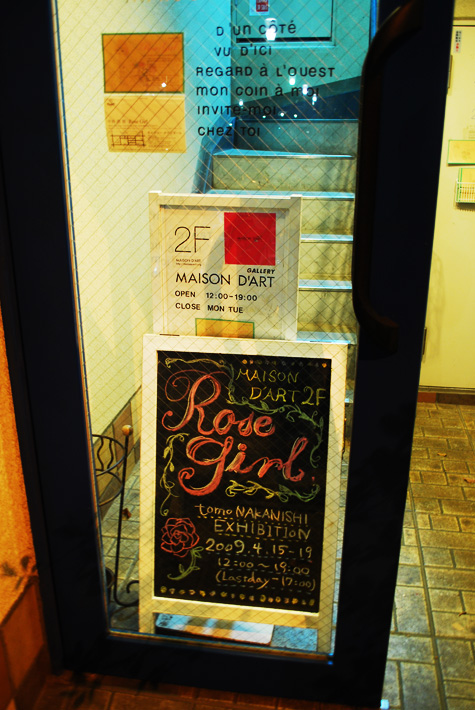 D'UN CÔTÉ
VU D'ICI
REGARD à L'OUEST
MON COIN à MOI
INVITE-MOI
CHEZ TOI
2F
GALLERY
MAISON D'ART
OPEN 12:00-19:00
CLOSE MON TUE
MAISON
D'ART 2F
Rose
Girl.
tomo NAKANISHI
EXHIBITION
2009.4.15-19
12:00~19:00
(Lastday-17:00)